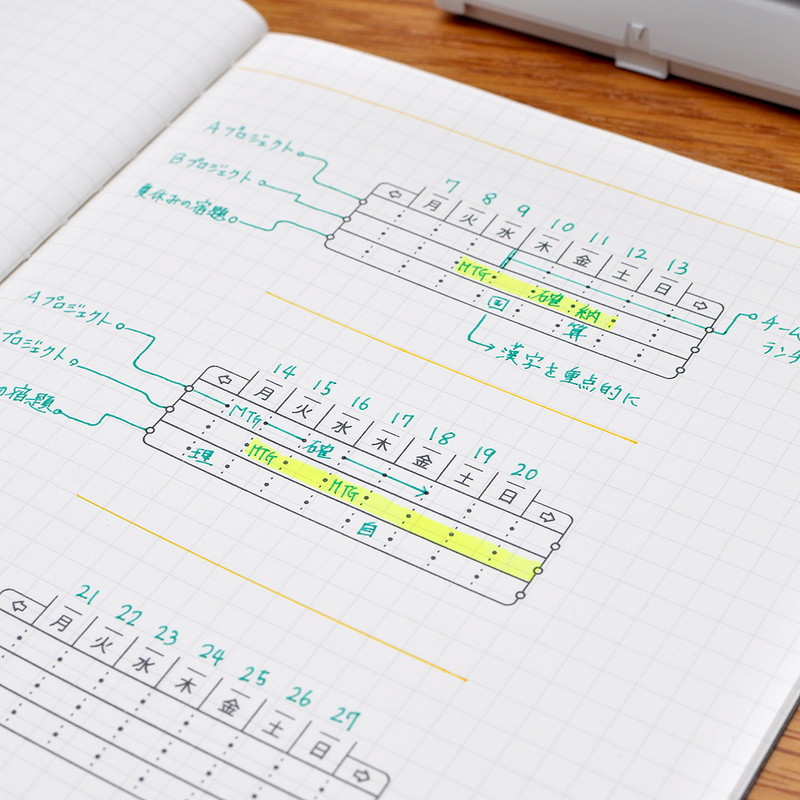 Aプロジェクト
Bプロジェクト
夏休みの宿題
7 8 9 10 11 12 13
月 火 水 木 金 土 日
MTG 確 納
国 算
漢字を重点的に
チーム
ランチ
Aプロジェクト
プロジェクト
の宿題
14 15 16 17 18 19 20
月 火 水 木 金 土 日
MTG 確
理 MTG MTG
自
21 22 23 24 25 26 27
月 火 水 木 金 土 日